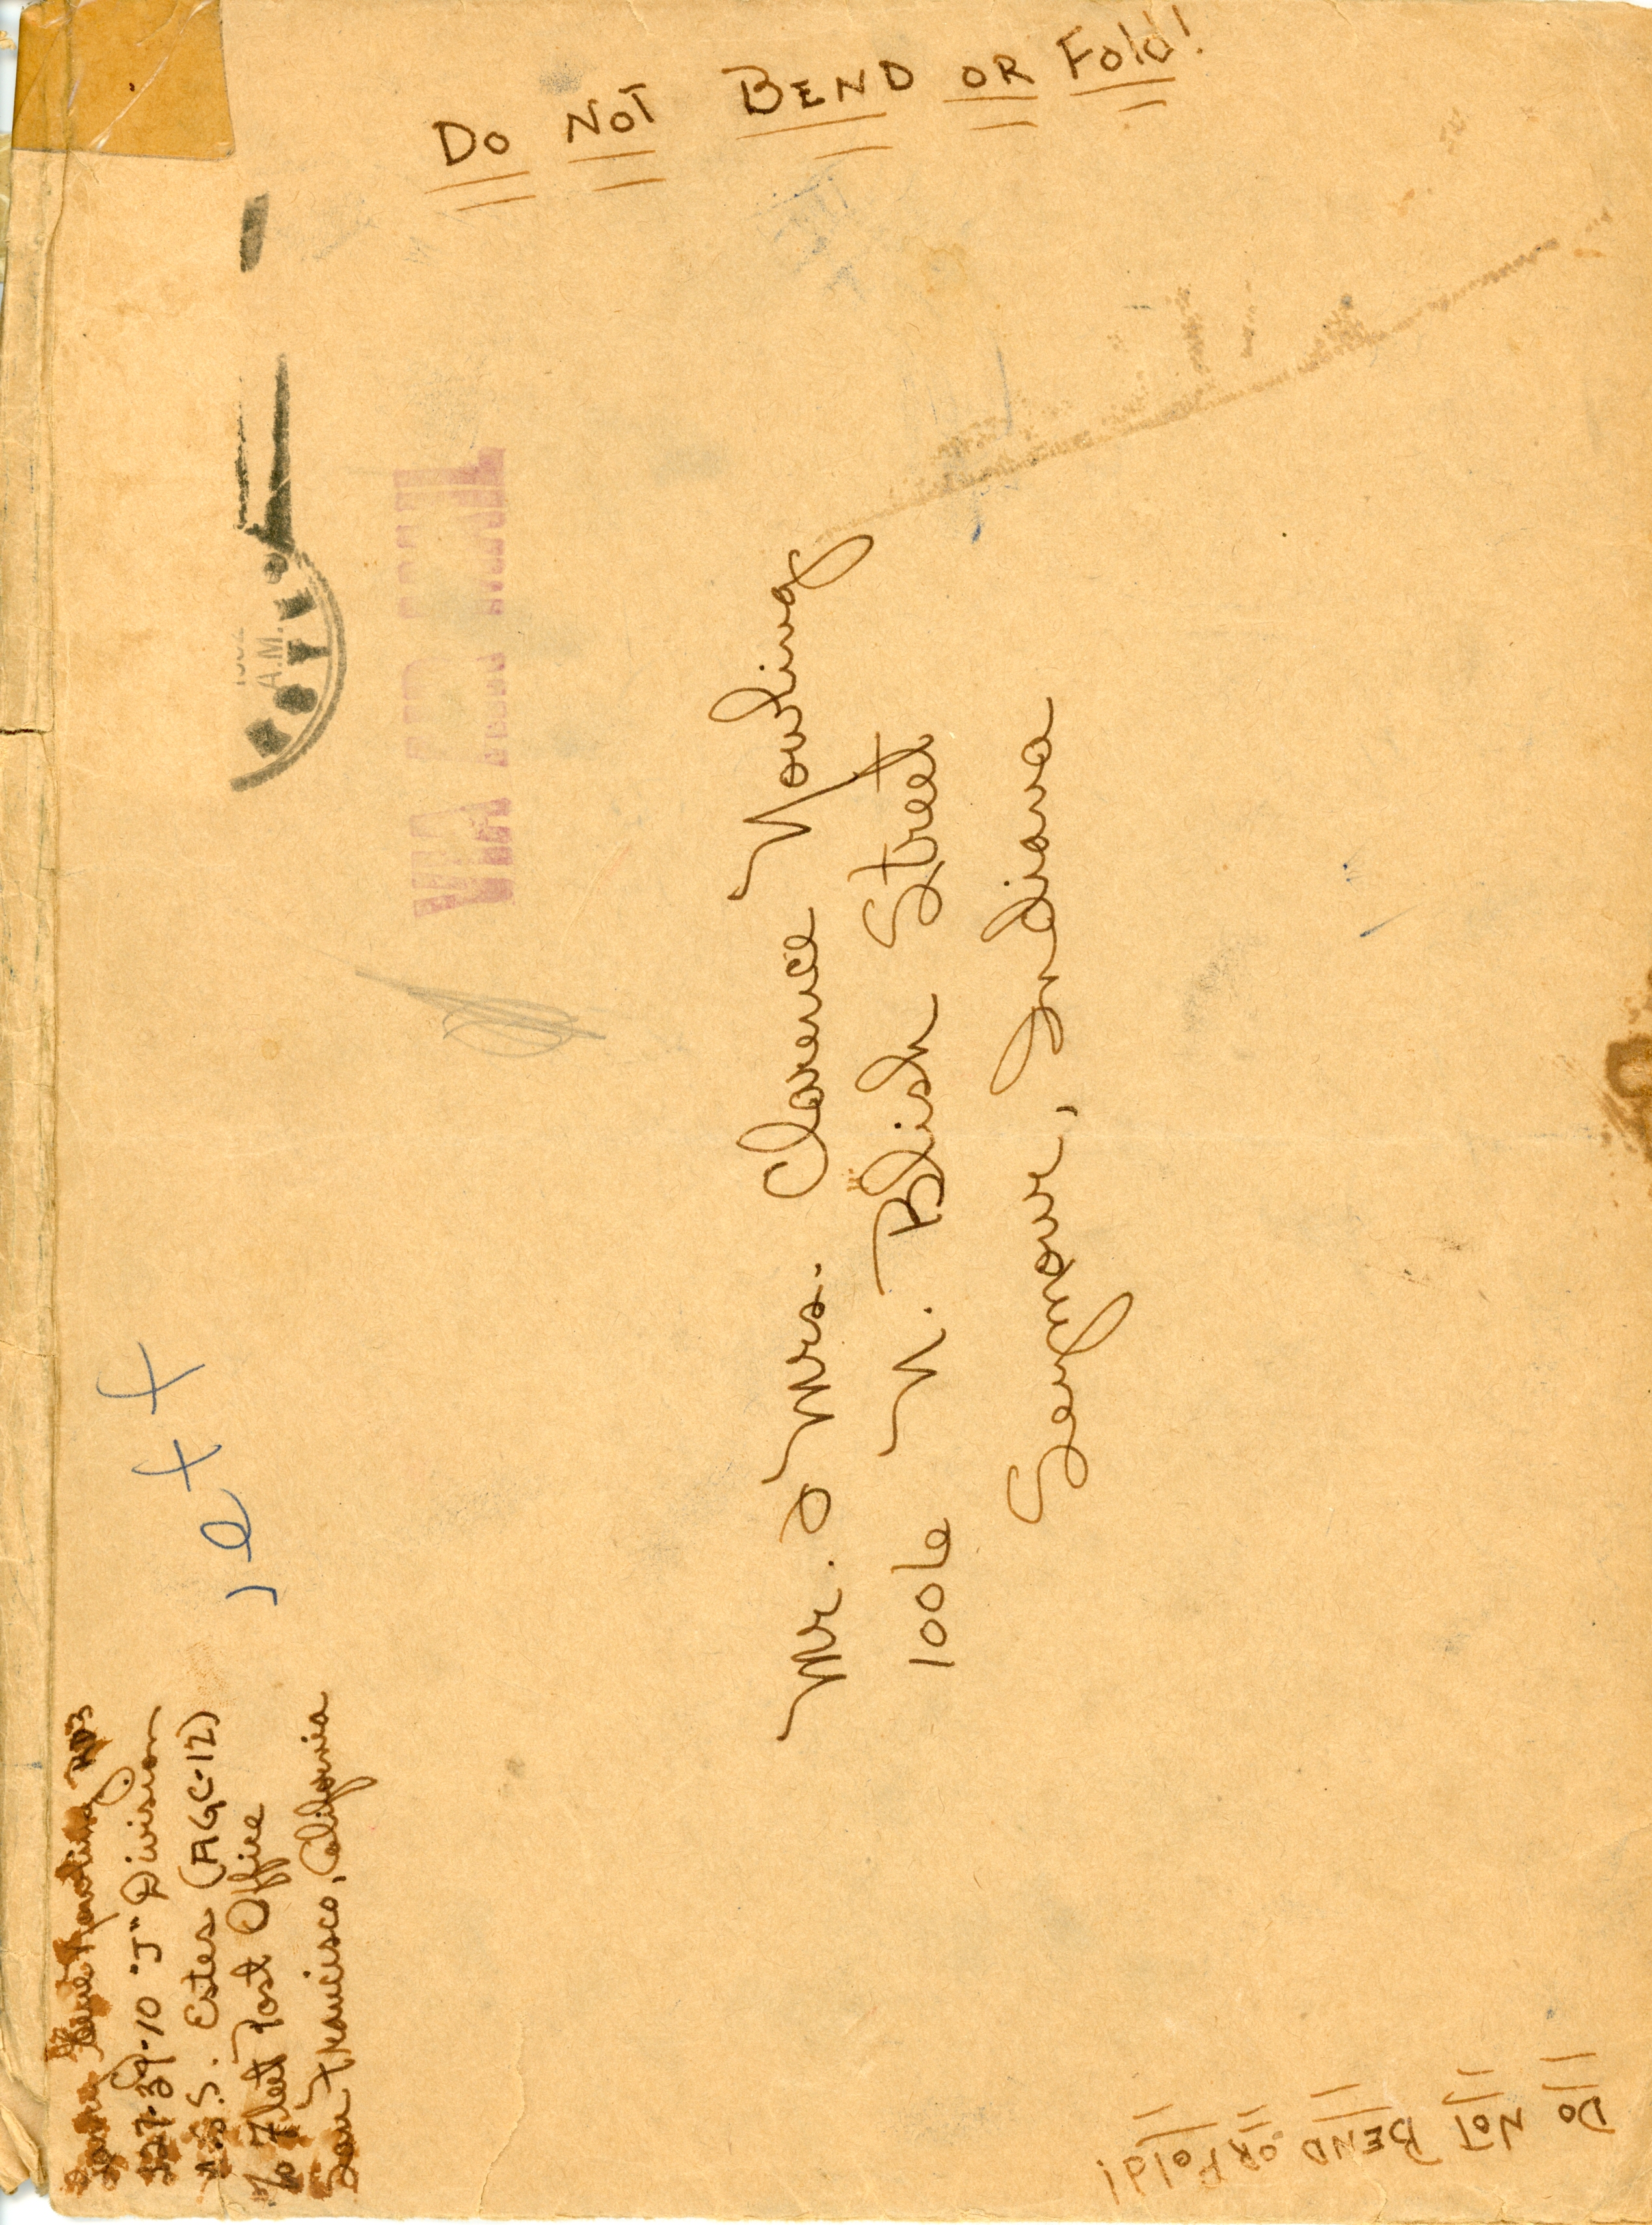 Nowling RD3
327-39-10 "J" Division
U.S.S. Estes (AGC-12)
c/o Fleet Post Office
San Francisco, California
A.M.
Mr. & Mrs. Clarence Nowling
1006 N. Blish Street
Seymour, Indiana
DO NOT BEND OR Fold!
DO NOT BEND OR Fold!